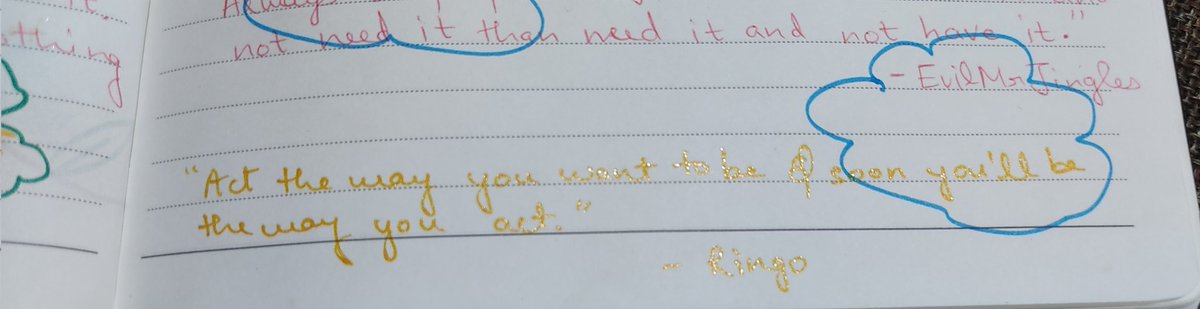 thing
not need it than need it and not have it."
- EvilMrJingles
"Act the way you want to be & soon you'll be
the way you act."
- Ringo